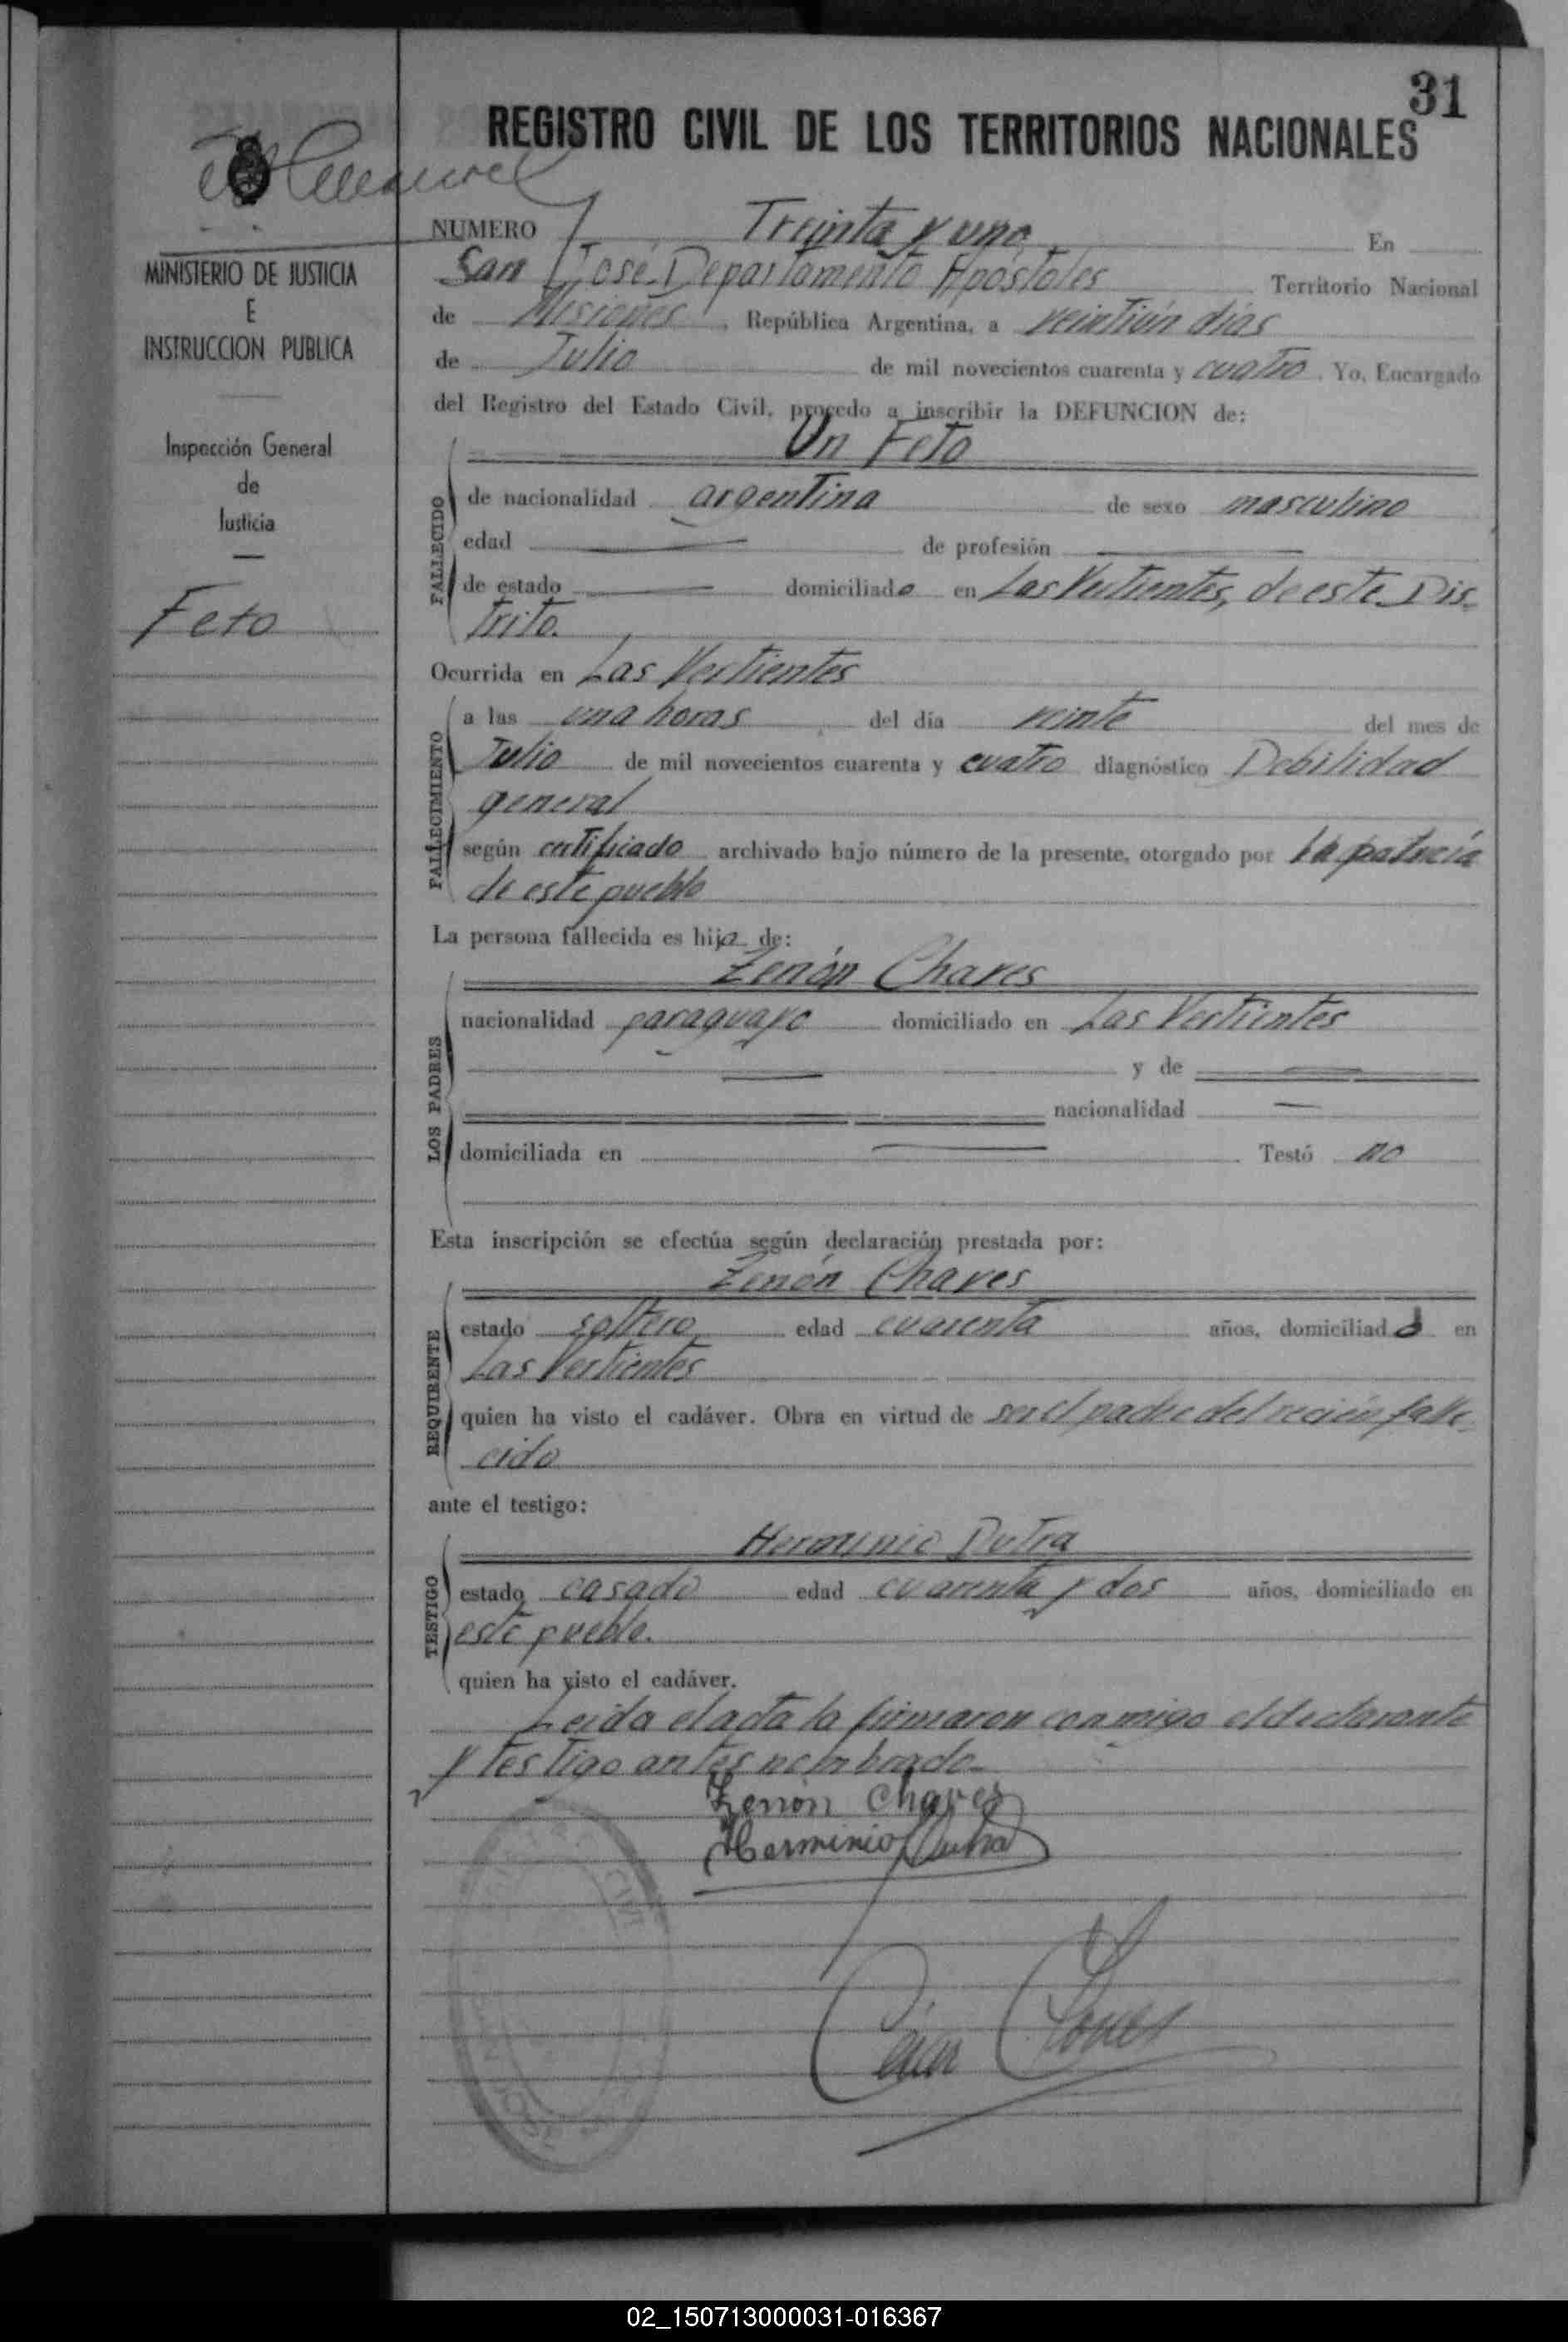 31
REGISTRO CIVIL DE LOS TERRITORIOS NACIONALES
MINISTERIO DE JUSTICIA
E
INSTRUCCION PUBLICA
Inspección General
de
Justicia
Feto
NUMERO Treinta y uno En
San José Departamento Apóstoles Territorio Nacional
de Misiones, República Argentina, a veintiún días
de Julio de mil novecientos cuarenta y cuatro. Yo, Encargado
del Registro del Estado Civil, procedo a inscribir la DEFUNCION de:
Un Feto
FALLECIDO
de nacionalidad argentina de sexo masculino
edad — de profesión —
de estado — domiciliado en Las Vertientes, de este Dis-
trito.
Ocurrida en Las Vertientes
FALLECIMIENTO
a las una horas del día veinte del mes de
Julio de mil novecientos cuarenta y cuatro diagnóstico Debilidad
general
según certificado archivado bajo número de la presente, otorgado por la
de este pueblo
La persona fallecida es hijo de:
Zenón Chaves
LOS PADRES
nacionalidad paraguayo domiciliado en Las Vertientes
— y de —
nacionalidad —
domiciliada en — Testó no
Esta inscripción se efectúa según declaración prestada por:
Zenón Chaves
REQUIRENTE
estado soltero edad cuarenta años, domiciliado en
Las Vertientes
quien ha visto el cadáver. Obra en virtud de ser el padre del recién falle-
cido
ante el testigo:
Herminio Dutra
TESTIGO
estado casado edad cuarenta y dos años, domiciliado en
este pueblo.
quien ha visto el cadáver.
Leida el acta la firmaron conmigo el declarante
y testigo antes nombrado.-
Zenón Chaves
Herminio Dutra
02_150713000031-016367